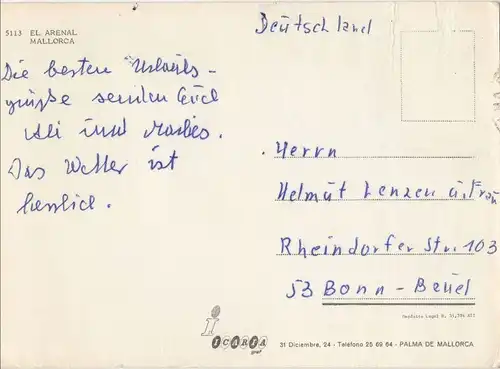 5113 EL ARENAL
MALLORCA
Deutschland
Die besten Urlaubs-
grüße senden Euch
und
Das Wetter ist
herrlich.
Herrn
Helmut Lenzen u. Frau
Rheindorfer Str. 103
53 Bonn - Beuel
Depósito Legal B.
ICARIA
31 Diciembre, 24 - Teléfono 25 69 64 - PALMA DE MALLORCA